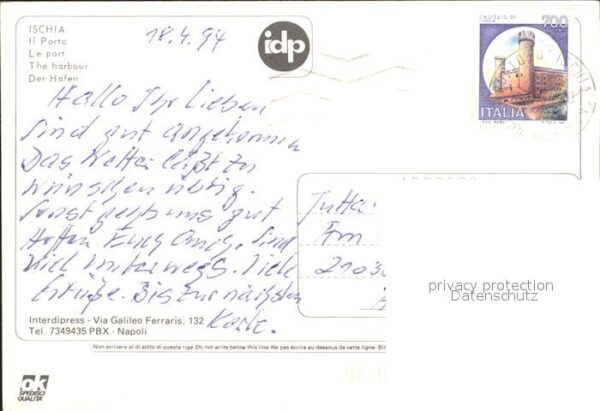 ISCHIA
Il Porto
Le port
The harbour
Der Hafen
18.4.94
idp
700
ITALIA
Hallo Ihr Lieben
Sind gut angekommen
Das Wetter läßt zu
wünschen übrig.
Sonst geht's uns gut
Hoffen Euch auch. Sind
viel unterwegs. Viele
Grüße. Bis zur nächsten
Karte.
Jutta
Am
privacy protection
Datenschutz
Interdipress - Via Galileo Ferraris, 132
Tel. 7349435 PBX - Napoli
Non scrivere al di sotto di questa riga - Do not write below this line - Ne pas écrire au dessous de cette ligne
ok
SPEDISCI
QUALITA'